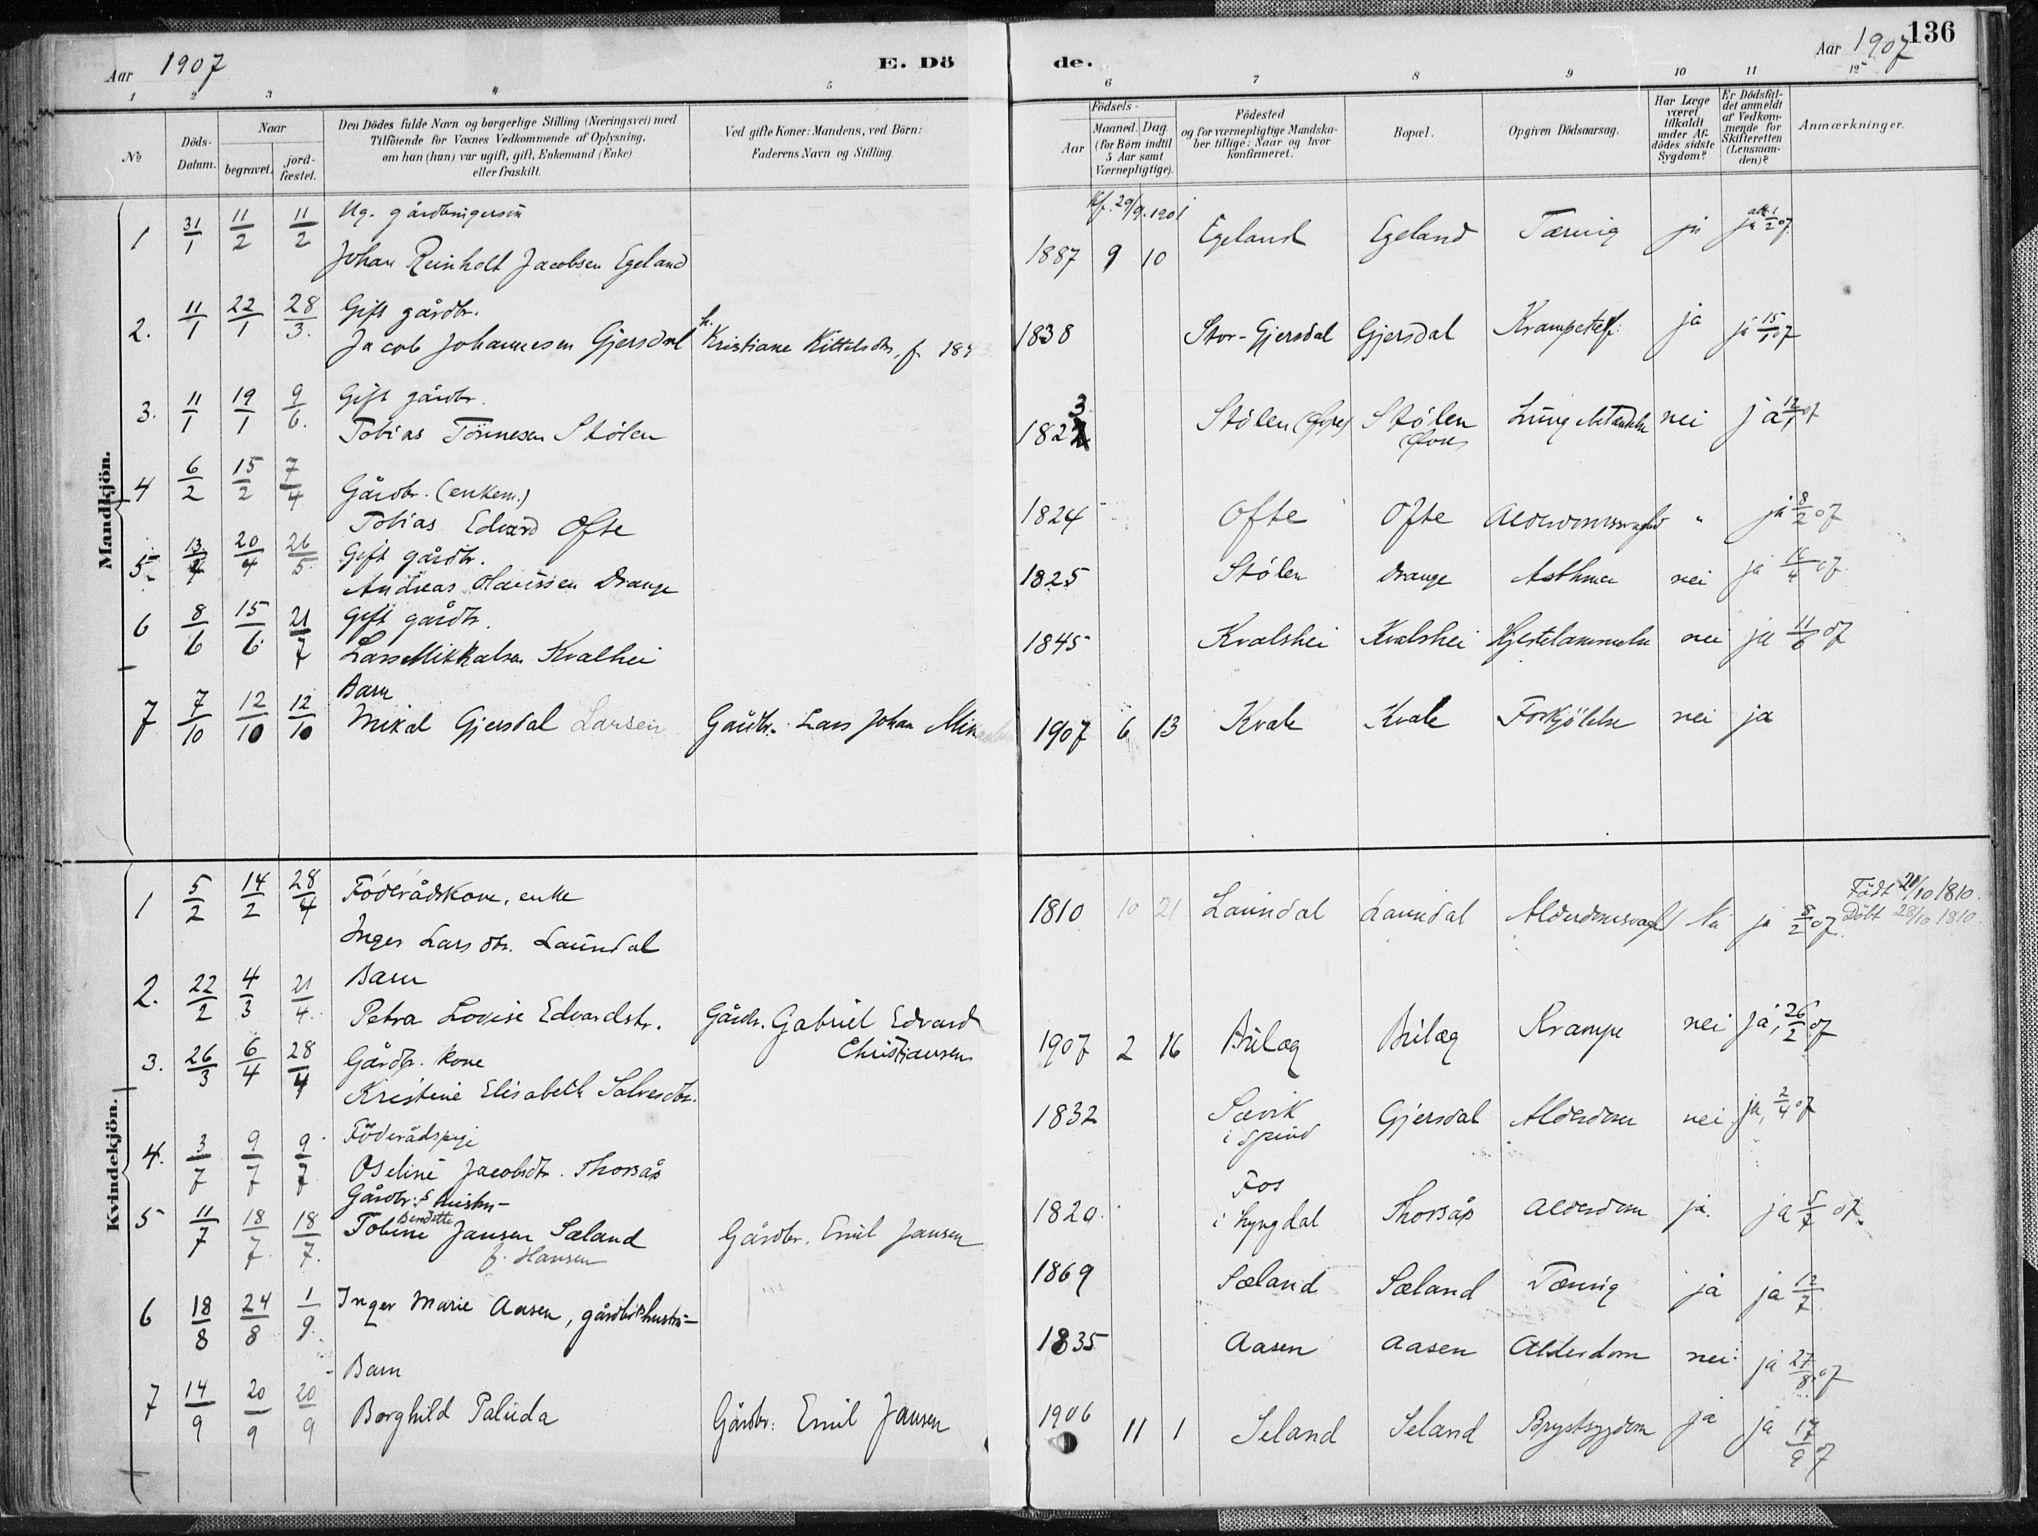 Aar 1907
E. Dö
de.
Aar 1907
136
1 2 3 4 5 6 7 8 9 10 11 12
No
Döds-
Datum.
Naar
begravet.
jord-
fæstet.
Den Dödes fulde Navn og borgerlige Stilling (Næringsvei) med
Tilföiende for Voxnes Vedkommende af Oplysning,
om han (hun) var ugift, gift, Enkemand (Enke)
eller fraskilt.
Ved gifte Koner: Mandens, ved Börn:
Faderens Navn og Stilling.
Födsels-
Aar
Maaned. Dag
(for Börn indtil
5 Aar samt
Værnepligtige).
Födested
og for værnepligtige Mandska-
ber tillige: Naar og hvor
konfirmeret.
Bopæl.
Opgiven Dödsaarsag.
Har Læge
været
tilkaldt
under Af-
dödes sidste
Sygdom?
Er Dödsfal-
det anmeldt
af Vedkom-
mende for
Skifteretten
(Lensman-
den)?
Anmærkninger.
Mandkjön.
Kf. 29/9. 1901
1 31/1 11/2 11/2 Ug. gårdbrugersön
Johan Reinholt Jacobsen Egeland 1887 9 10 Egeland Egeland Tæring ja ja 1/2 07.
2. 11/1 22/1 28/3. Gift gårdbr.
Jacob Johannesen Gjersdal Kristiane Kittelsdtr. f. 1838 Stor-Gjersdal Gjersdal ja ja 15/1 07
3. 11/1 19/1 9/6. Gift gårdbr.
Tobias Tönnesen Stölen 1823 Stölen Stölen nei ja 12/1 07
4 6/2 15/2 7/4 Gårdbr. (enkem.)
Tobias Edvard Ofte 1824 Ofte Ofte " ja 8/2 07
5. 13/4 20/4 26/5. Gift gårdbr.
Andreas Drange 1825 Stölen Drange Asthma nei ja 07.
6 8/6 15/6. 21/7 Gift gårdbr.
Lars Mikkalsen Kvalhei 1845 Kvalshei Kvalshei Hjertelammelse nei ja 11/6 07
7 7/10 12/10 12/10 Barn
Mikal Gjersdal Larsen Gårdbr. Lars Johan 1907 6 13 Kvale Kvale Forkjölelse nei ja
Kvindekjön.
1 5/2 14/2 28/4 Föderådskone, enke
Inger Larsdtr. Laundal 1810 10 21 Laundal Laundal Nei ja 8/2 07. Födt 21/10 1810.
Döbt 28/10 1810.
2. 22/2 4/3 21/4. Barn
Petra Lovise Edvardstr. Gårdbr. Gabriel Edvard
Christiansen 1907 2 16 Büläg Büläg Krampe nei ja, 26/2 07
3. 26/3 6/4 28/4 Gårdbr. kone
Kristine Elisabeth Salvesdtr. 1832 Sævik
i Spind Gjersdal Alderdom nei ja, 2/4 07
4. 3/7 9/7 9/7. Föderådspige
Oseline Jacobsdtr. Thorsås 1820. Fos
i Lyngdal Thorsås Alderdom ja. ja 5/7 07.
5 11/7 18/7. 18/7. Gårdbr:s hustru-
Tobine Bendette Jansen Sæland
f. Hansen Gårdbr. Emil Jansen 1869 Sæland Sæland Tæring ja ja 12/7
6 18/8 24/8 1/9. Inger Marie Aasen, gårdbrs hustru- 1835 Aasen Aasen Alderdom nei ja 27/8. 07
7 14/9 20/9 20/9 Barn
Borghild Palüda Gårdbr: Emil Jansen 1906 11 1 Seland Seland Brystsygdom ja ja 17/9 07